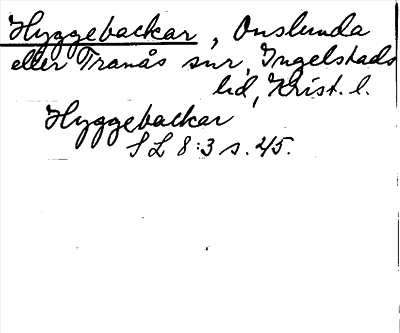 Hyggebackar, Onslunda
eller Tranås snr, Ingelstads
hd, Krist. l.
Hyggebackar
S L 8:3 s. 45.